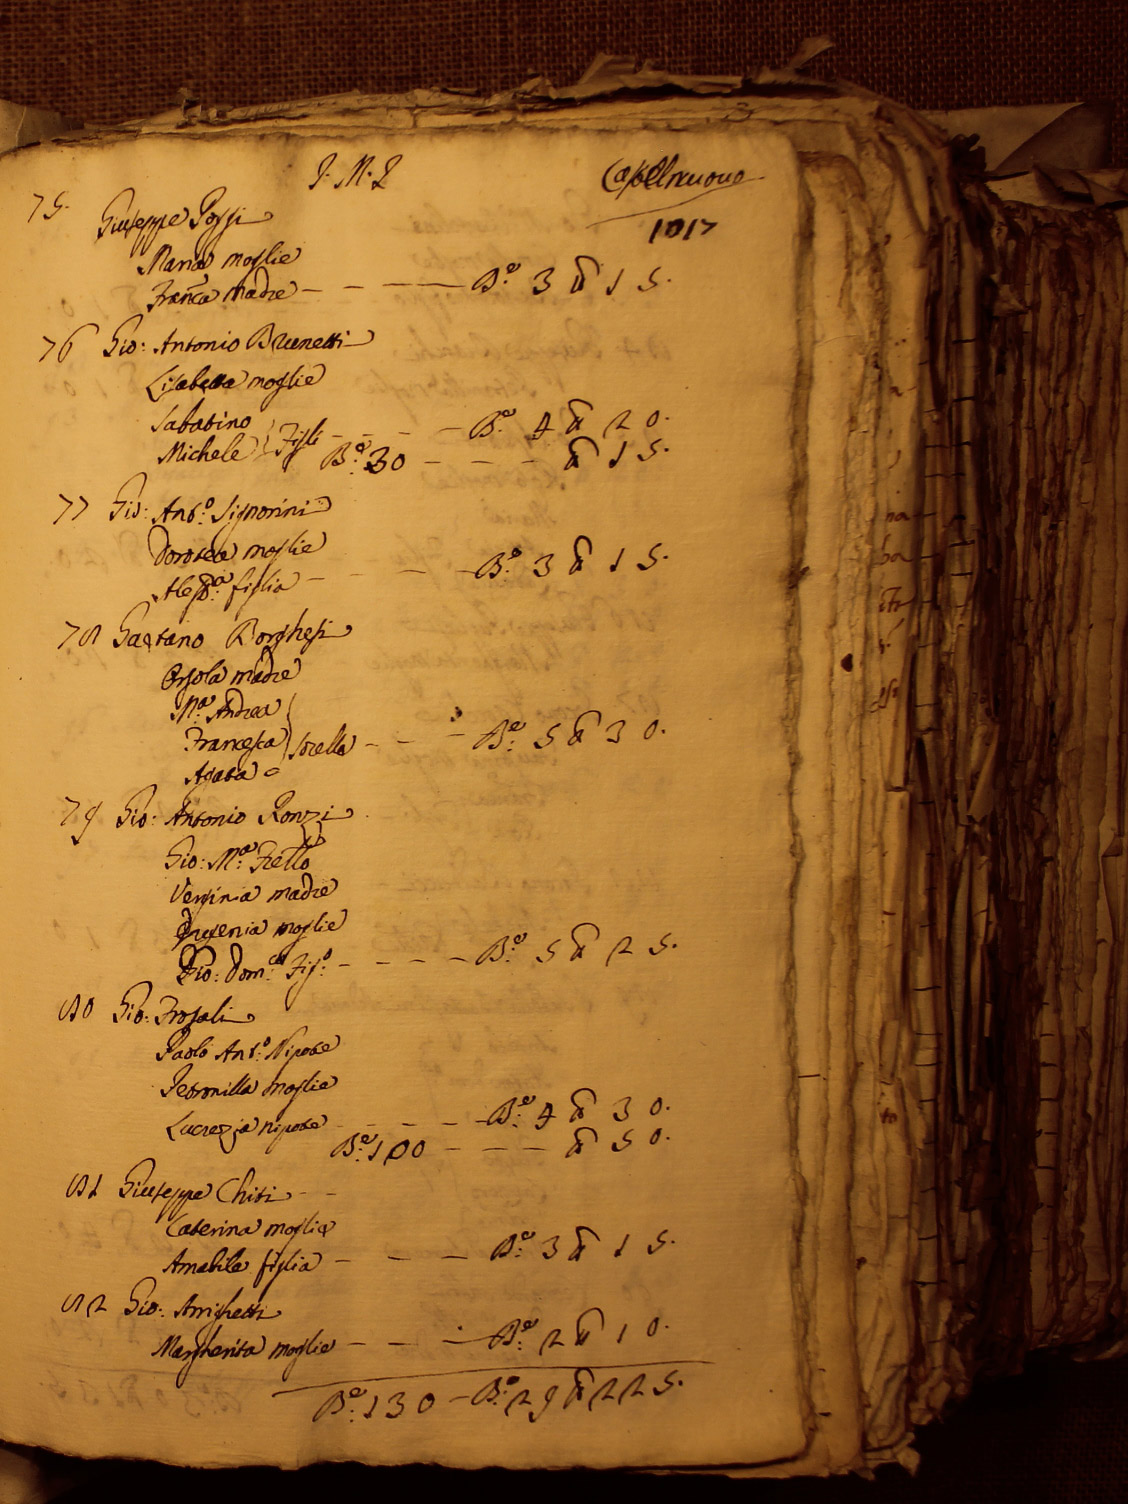 J. M. J.
Castelnuovo
1017
75. Giuseppe Possi
Maria moglie
Franca madre — — — Be: 3 ₶ 15.
76 Gio: Antonio Brunetti
Lisabetta moglie
Sabatino
Michele } Figli — — — Be: 4 ₶ 20.
Be: 30 — — — ₶ 15.
77 Gio: Anto: Signorini
Dorotea moglie
Alesda: figlia — — — Be: 3 ₶ 15.
78 Gaetano Borghesi
Orsola madre
Ma: Andrea
Francesca } sorelle — — — Be: 5 ₶ 30.
Agata
79 Gio: Antonio Ronzi
Gio: Ma: Frello
Verginia madre
Eugenia moglie
Gio: Domco: Figo: — — — Be: 5 ₶ 25.
80 Gio: Frosali
Paolo Anto: Nipote
Petronilla moglie
Lucrezia nipote — — — Be: 4 ₶ 30.
Be: 100 — — — ₶ 50.
81 Giuseppe Chiti — —
Caterina moglie
Amabile figlia — — — Be: 3 ₶ 15.
82 Gio: Arrighetti
Margherita moglie — — — Be: 2 ₶ 10.
Be: 130 — Be: 29 ₶ 225.